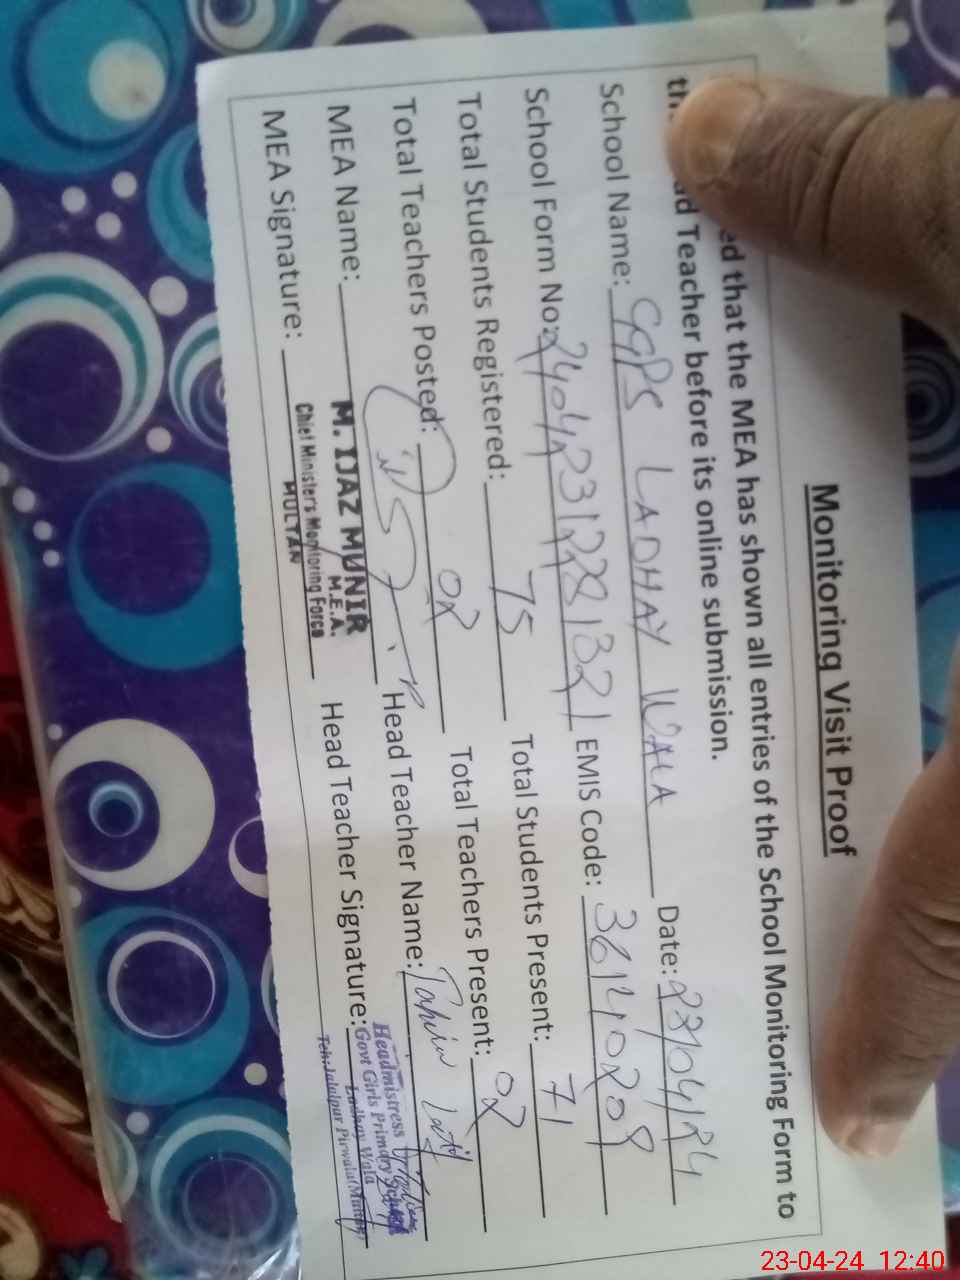 Monitoring Visit Proof
ed that the MEA has shown all entries of the School Monitoring Form to
Teacher before its online submission.
School Name: GGPS LADHAY WALA Date: 23/04/24
School Form No: EMIS Code: 36141029
Total Students Registered: 75 Total Students Present: 71
Total Teachers Posted: 02 Total Teachers Present: 02
MEA Name: M. IJAZ MUNIR Head Teacher Name:
M.E.A.
MEA Signature: Chief Minister's Monitoring Force Head Teacher Signature:
MULTAN
Headmistress
Govt Girls Primary School
Ladhay Wala
Teh: Jalalpur Pirwala(Multan)
23-04-24 12:40